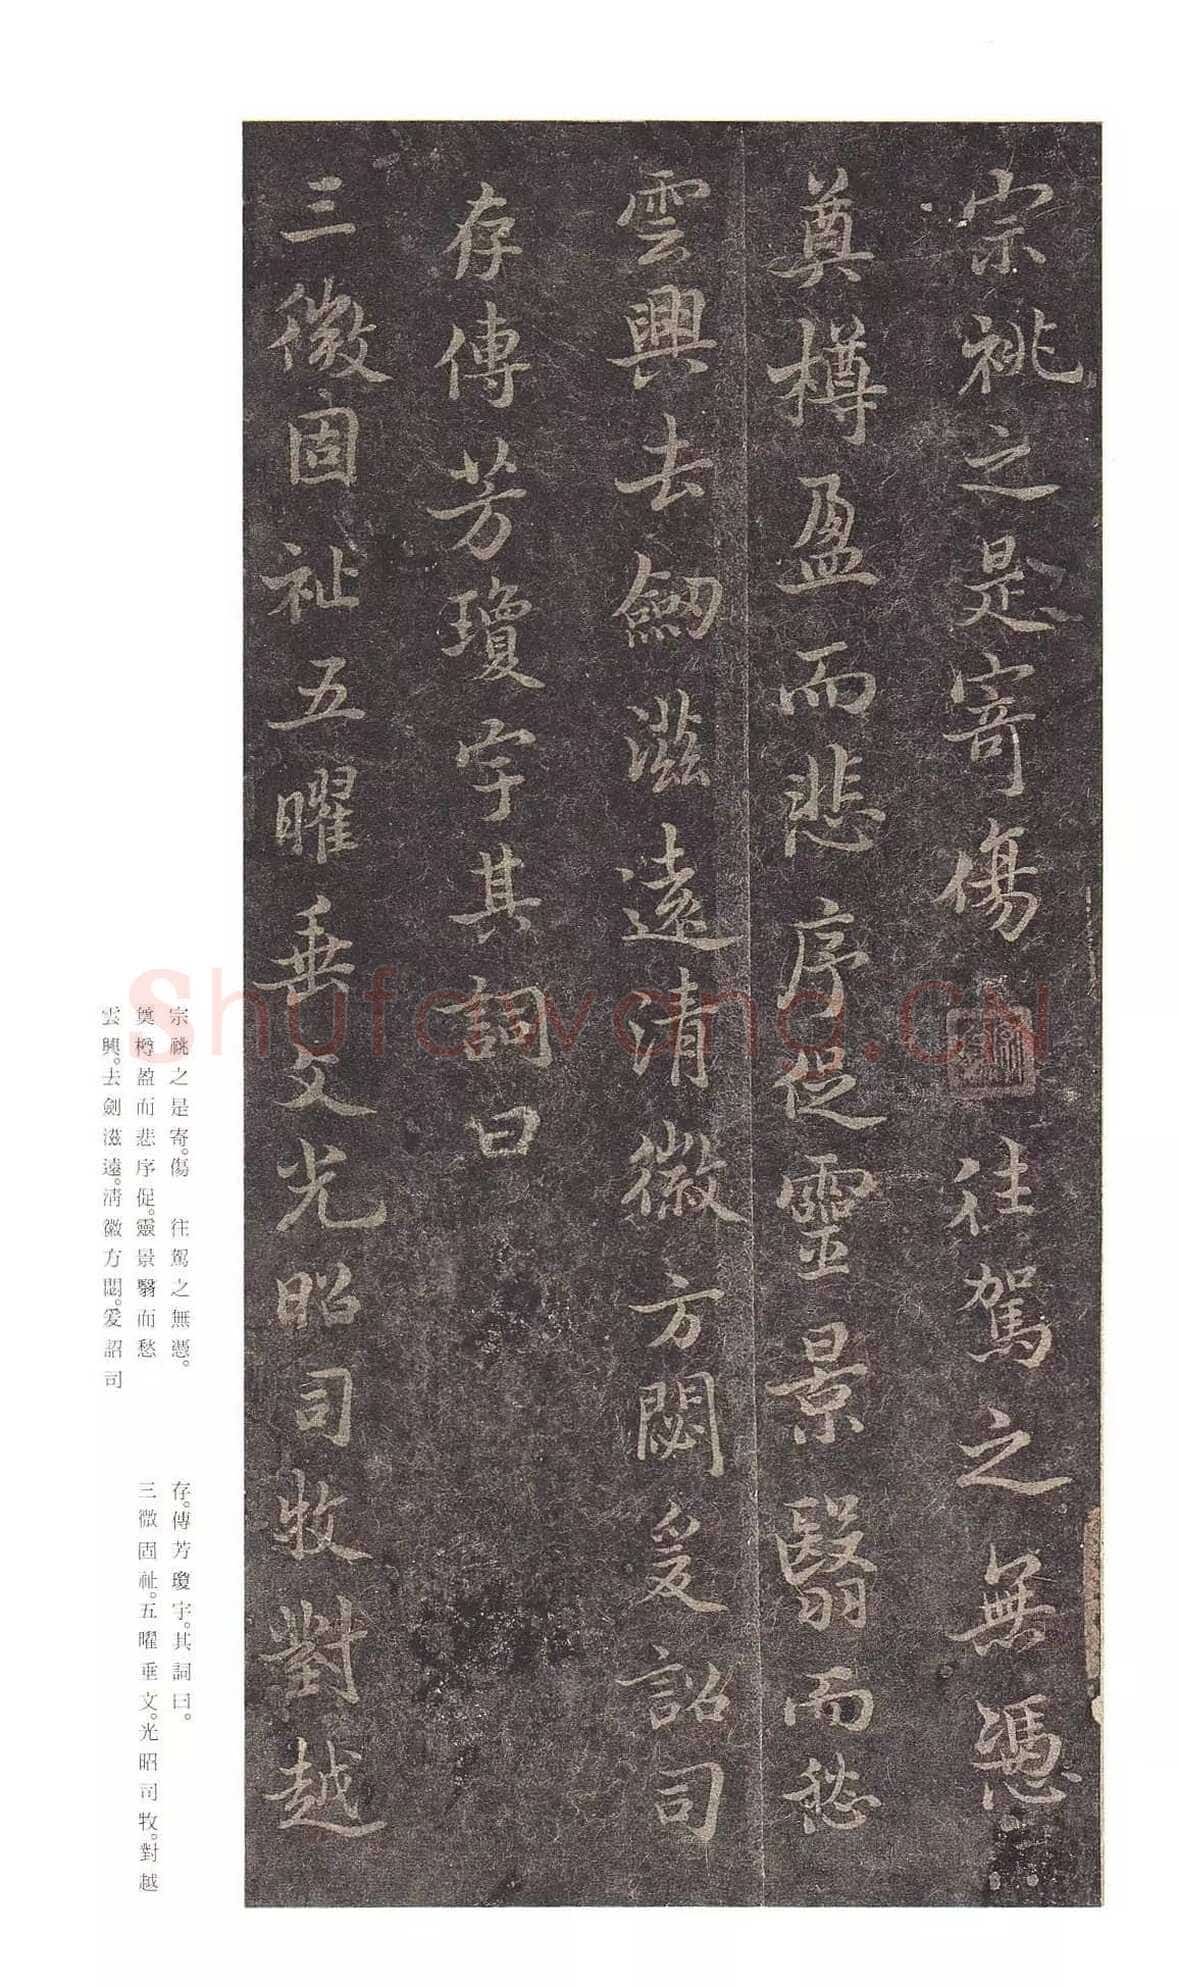 宗祧之是寄傷往駕之無憑
奠樽盈而悲序促靈景翳而愁
雲興去劒滋遠清徽方閟爰詔司
存傳芳瓊宇其詞曰
三微固祉五曜垂文光昭司牧對越
宗祧之是寄。傷 往駕之無憑。
奠樽盈而悲序促。靈景翳而愁
雲興。去劍滋遠。清徽方閟。爰詔司
存。傳芳瓊宇。其詞曰。
三微固祉。五曜垂文。光昭司牧。對越
Shufawang.CN